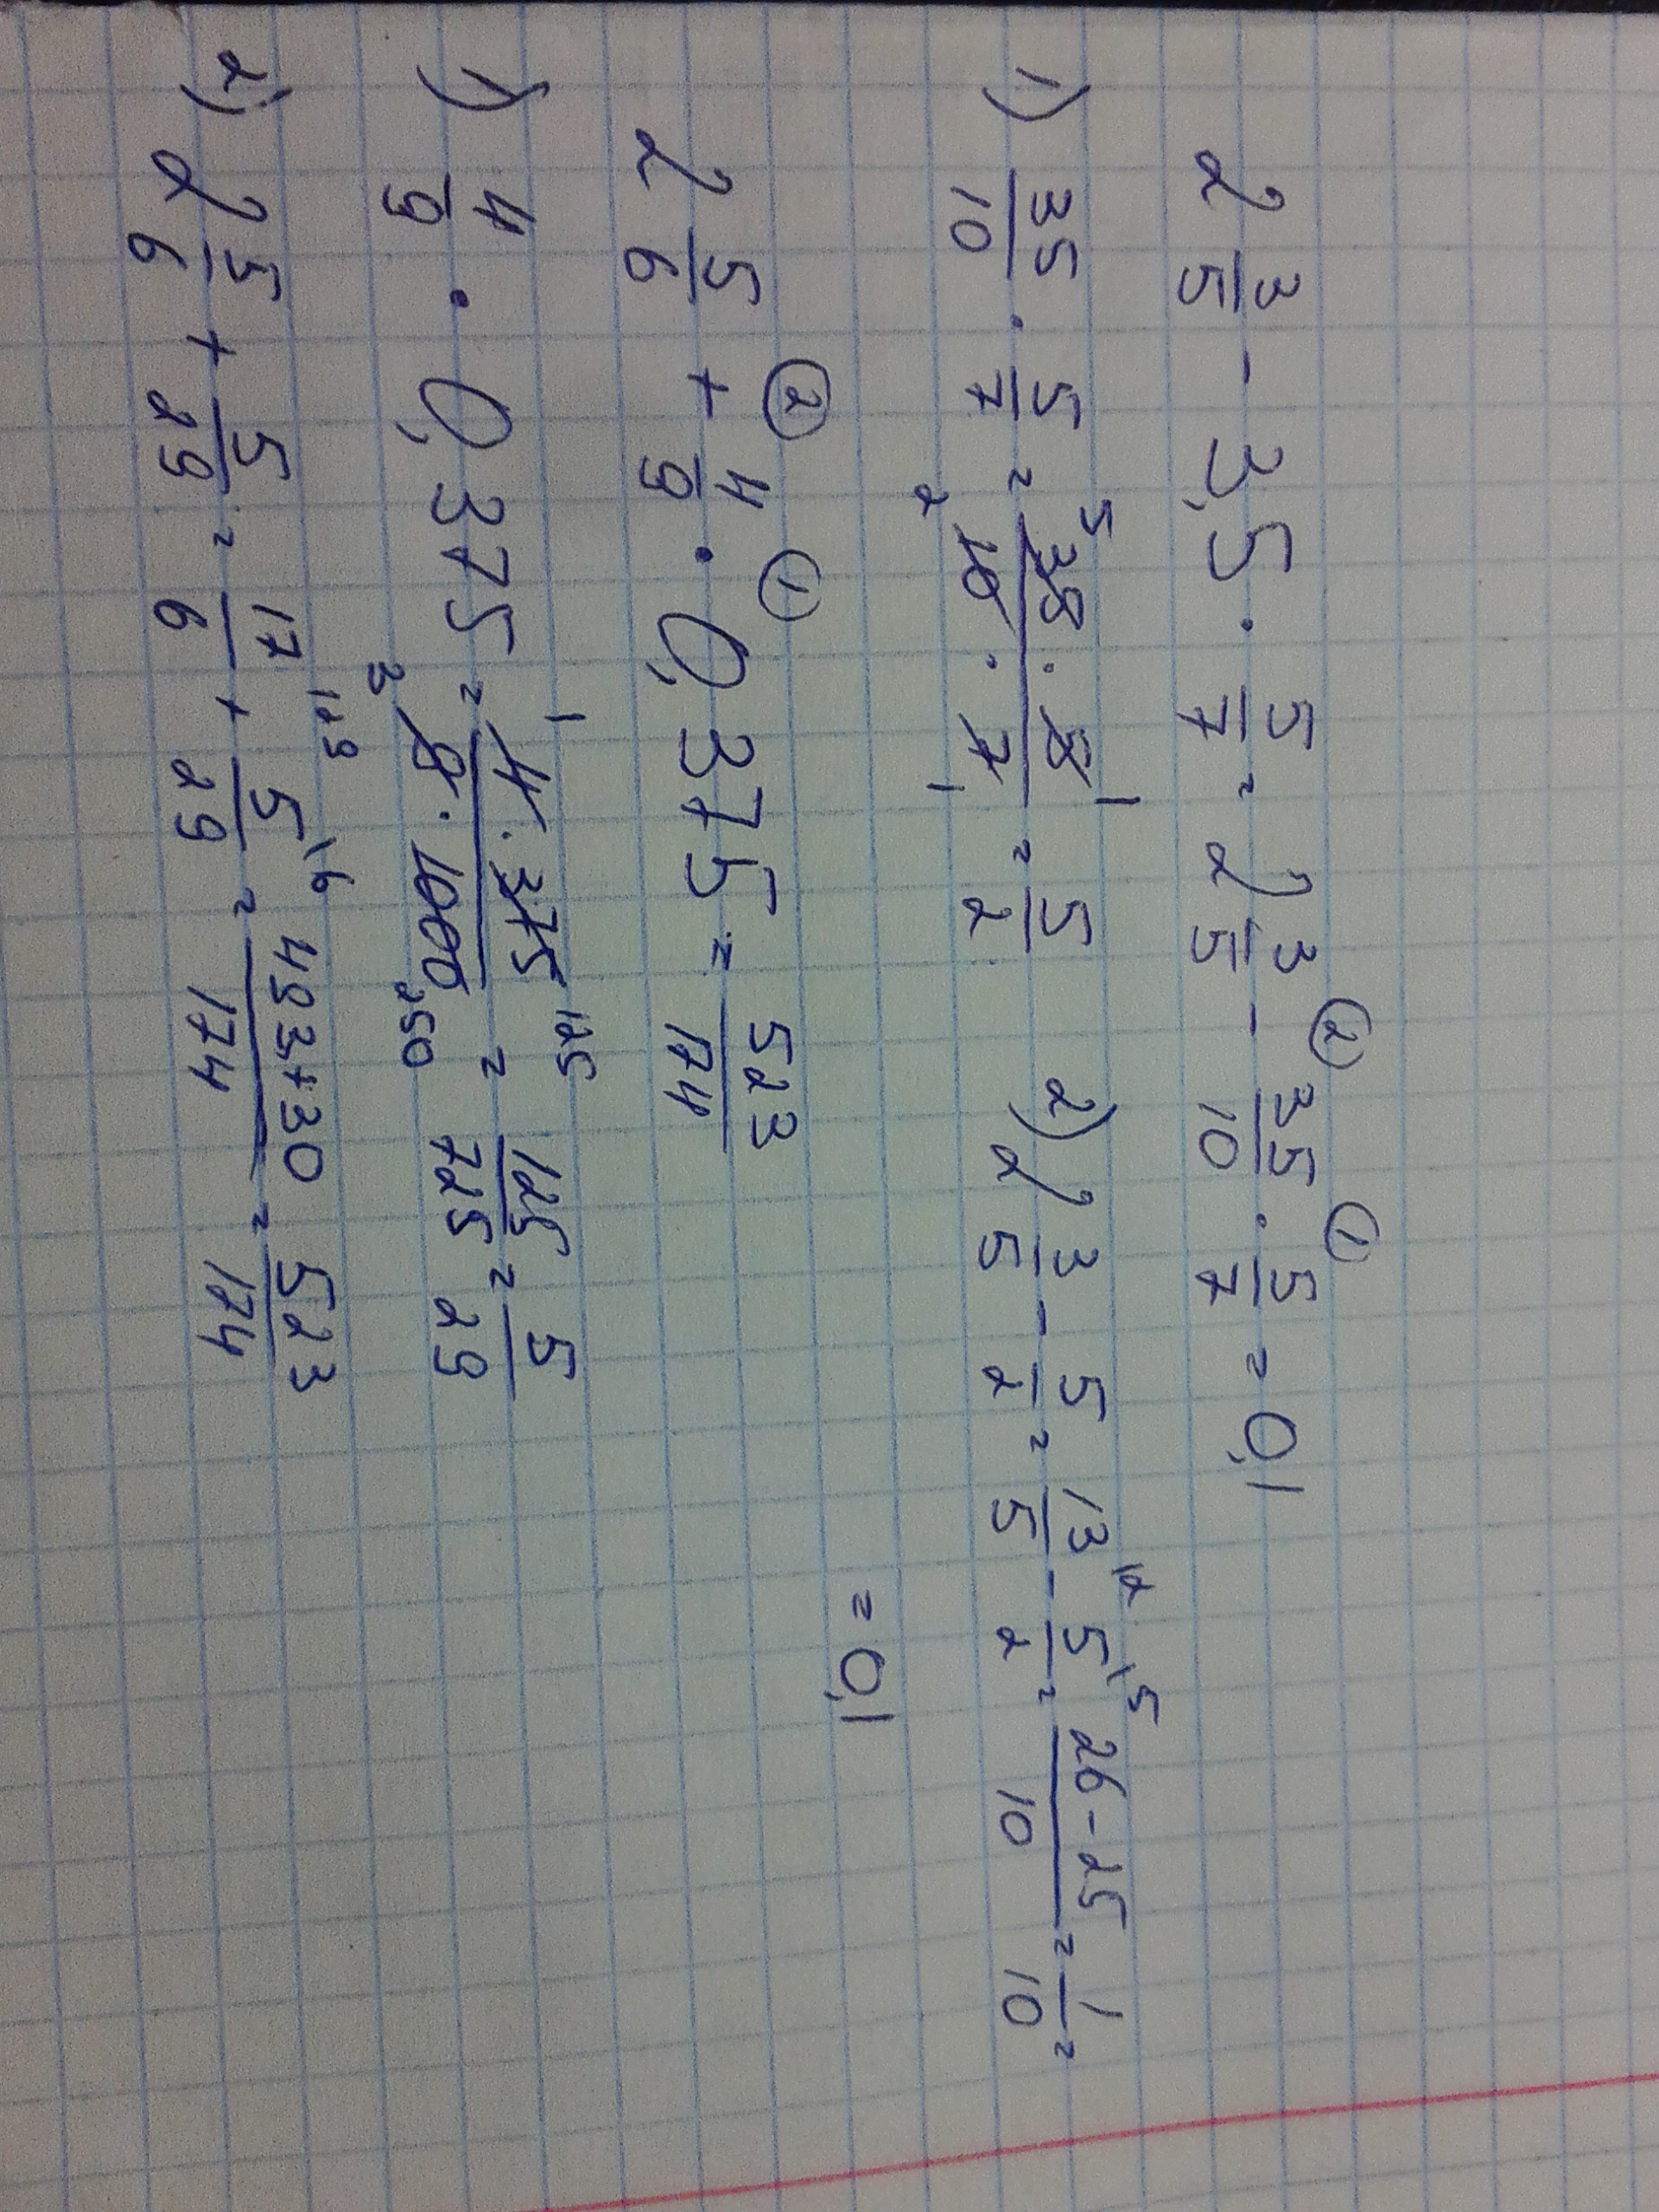 2 3/5 - 3,5 · 5/7 = 2 3/5 - ② 35/10 · ① 5/7 = 0,1
1) 35/10 · 5/7 = 35 · 5 / 10 · 7 = 5/2 2) 2 3/5 - 5/2 = 13/5 \2 - 5/2 \5 = 26-25/10 = 1/10 =
= 0,1
2 5/6 + ② 4/9 · ① 0,375 = 523/174
1) 4/9 · 0,375 = 4 · 375 / 9 · 1000 = 125/725 = 5/29
2) 2 5/6 + 5/29 = 17/6 \29 + 5/29 \6 = 493+30/174 = 523/174